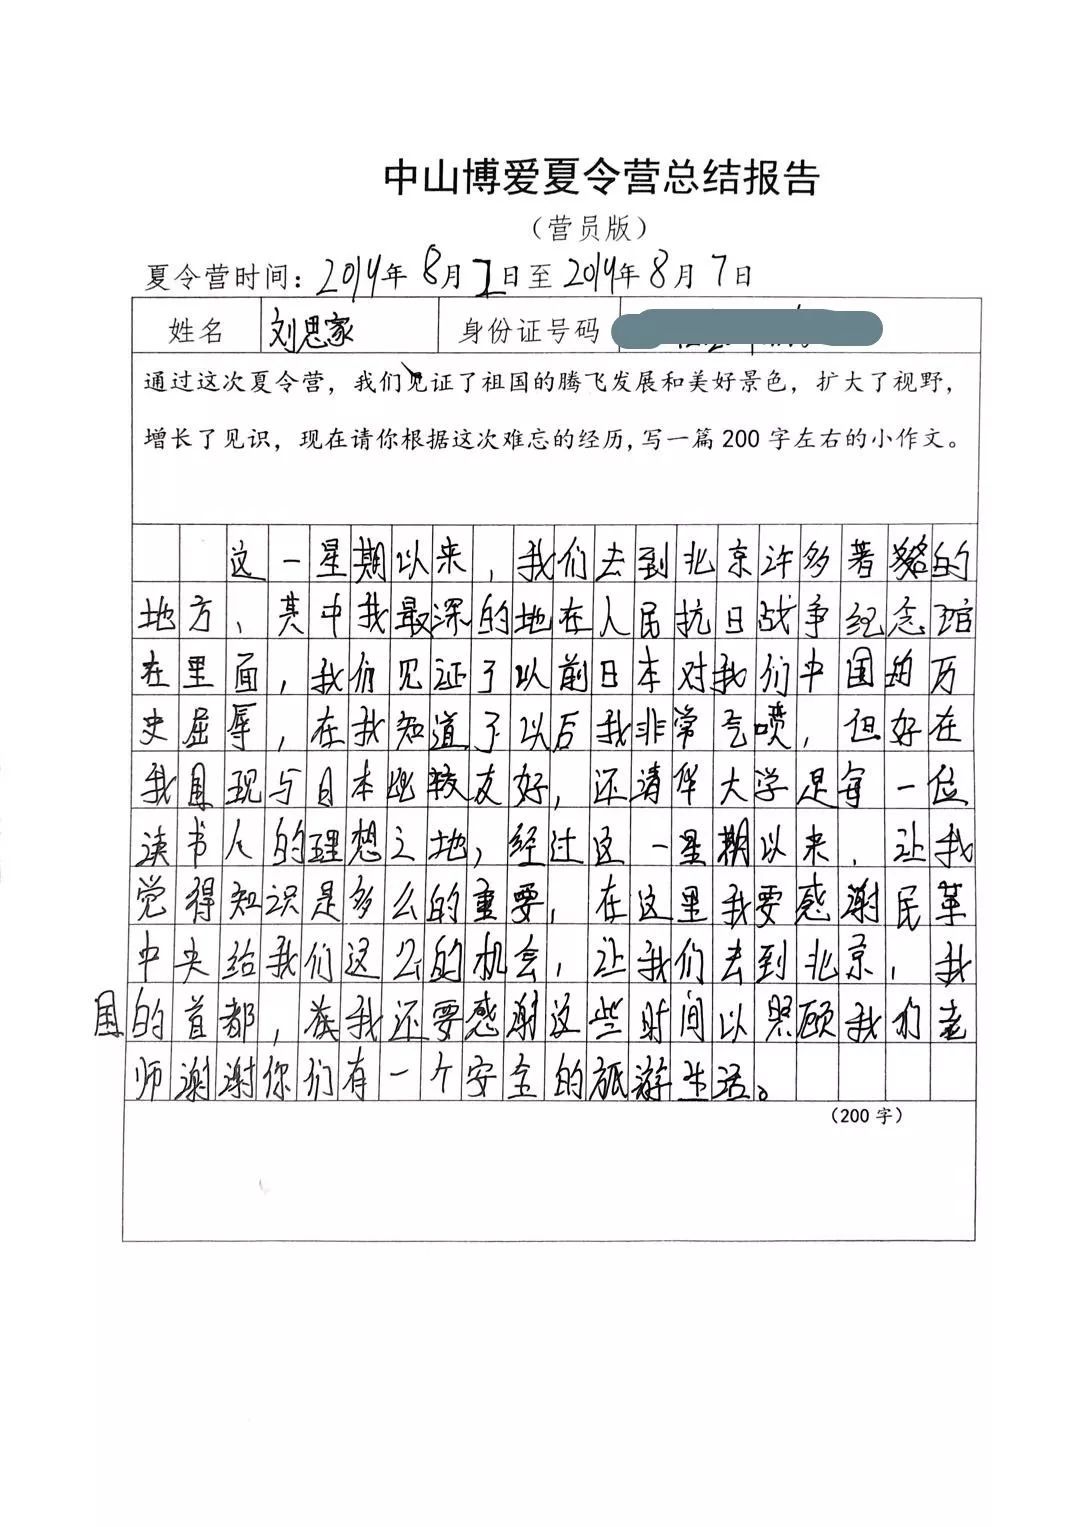 中山博爱夏令营总结报告
（营员版）
夏令营时间：2014年8月1日至2014年8月7日
姓名 刘思家 身份证号码
通过这次夏令营，我们见证了祖国的腾飞发展和美好景色，扩大了视野，
增长了见识，现在请你根据这次难忘的经历，写一篇200字左右的小作文。
这一星期以来，我们去到北京许多著名的
地方、其中我最深的地在人民抗日战争纪念馆
在里面，我们见证了以前日本对我们中国的历
史屈辱，在我知道了以后我非常气喷，但好在
我国现与日本比较友好，还清华大学是每一位
读书人的理想之地，经过这一星期以来，让我
觉得知识是多么的重要，在这里我要感谢民革
中央给我们这么的机会，让我们去到北京，我
国的首都，我还要感谢这些时间以照顾我们老
师谢谢你们有一个安全的旅游生活。
（200字）